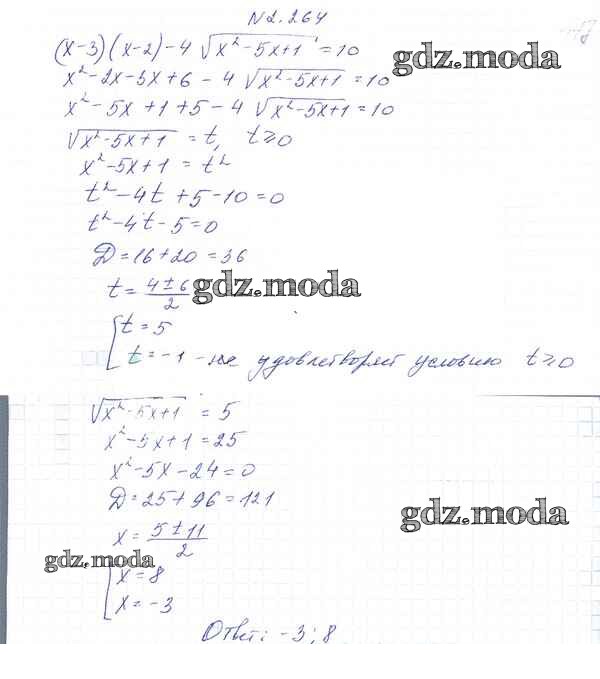 N 2.264
(x-3)(x-2)-4√(x²-5x+1) = 10
gdz.moda
x²-2x-3x+6-4√(x²-5x+1) = 10
x²-5x+1+5-4√(x²-5x+1) = 10
√(x²-5x+1) = t, t≥0
x²-5x+1 = t²
t²-4t+5-10=0
t²-4t-5=0
D=16+20=36
t = (4±6)/2
gdz.moda
[t=5
t=-1 - не удовлетворяет условию t≥0
√(x²-5x+1) = 5
x²-5x+1=25
x²-5x-24=0
D=25+96=121
gdz.moda
x = (5±11)/2
gdz.moda
[x=8
x=-3
Ответ: -3; 8